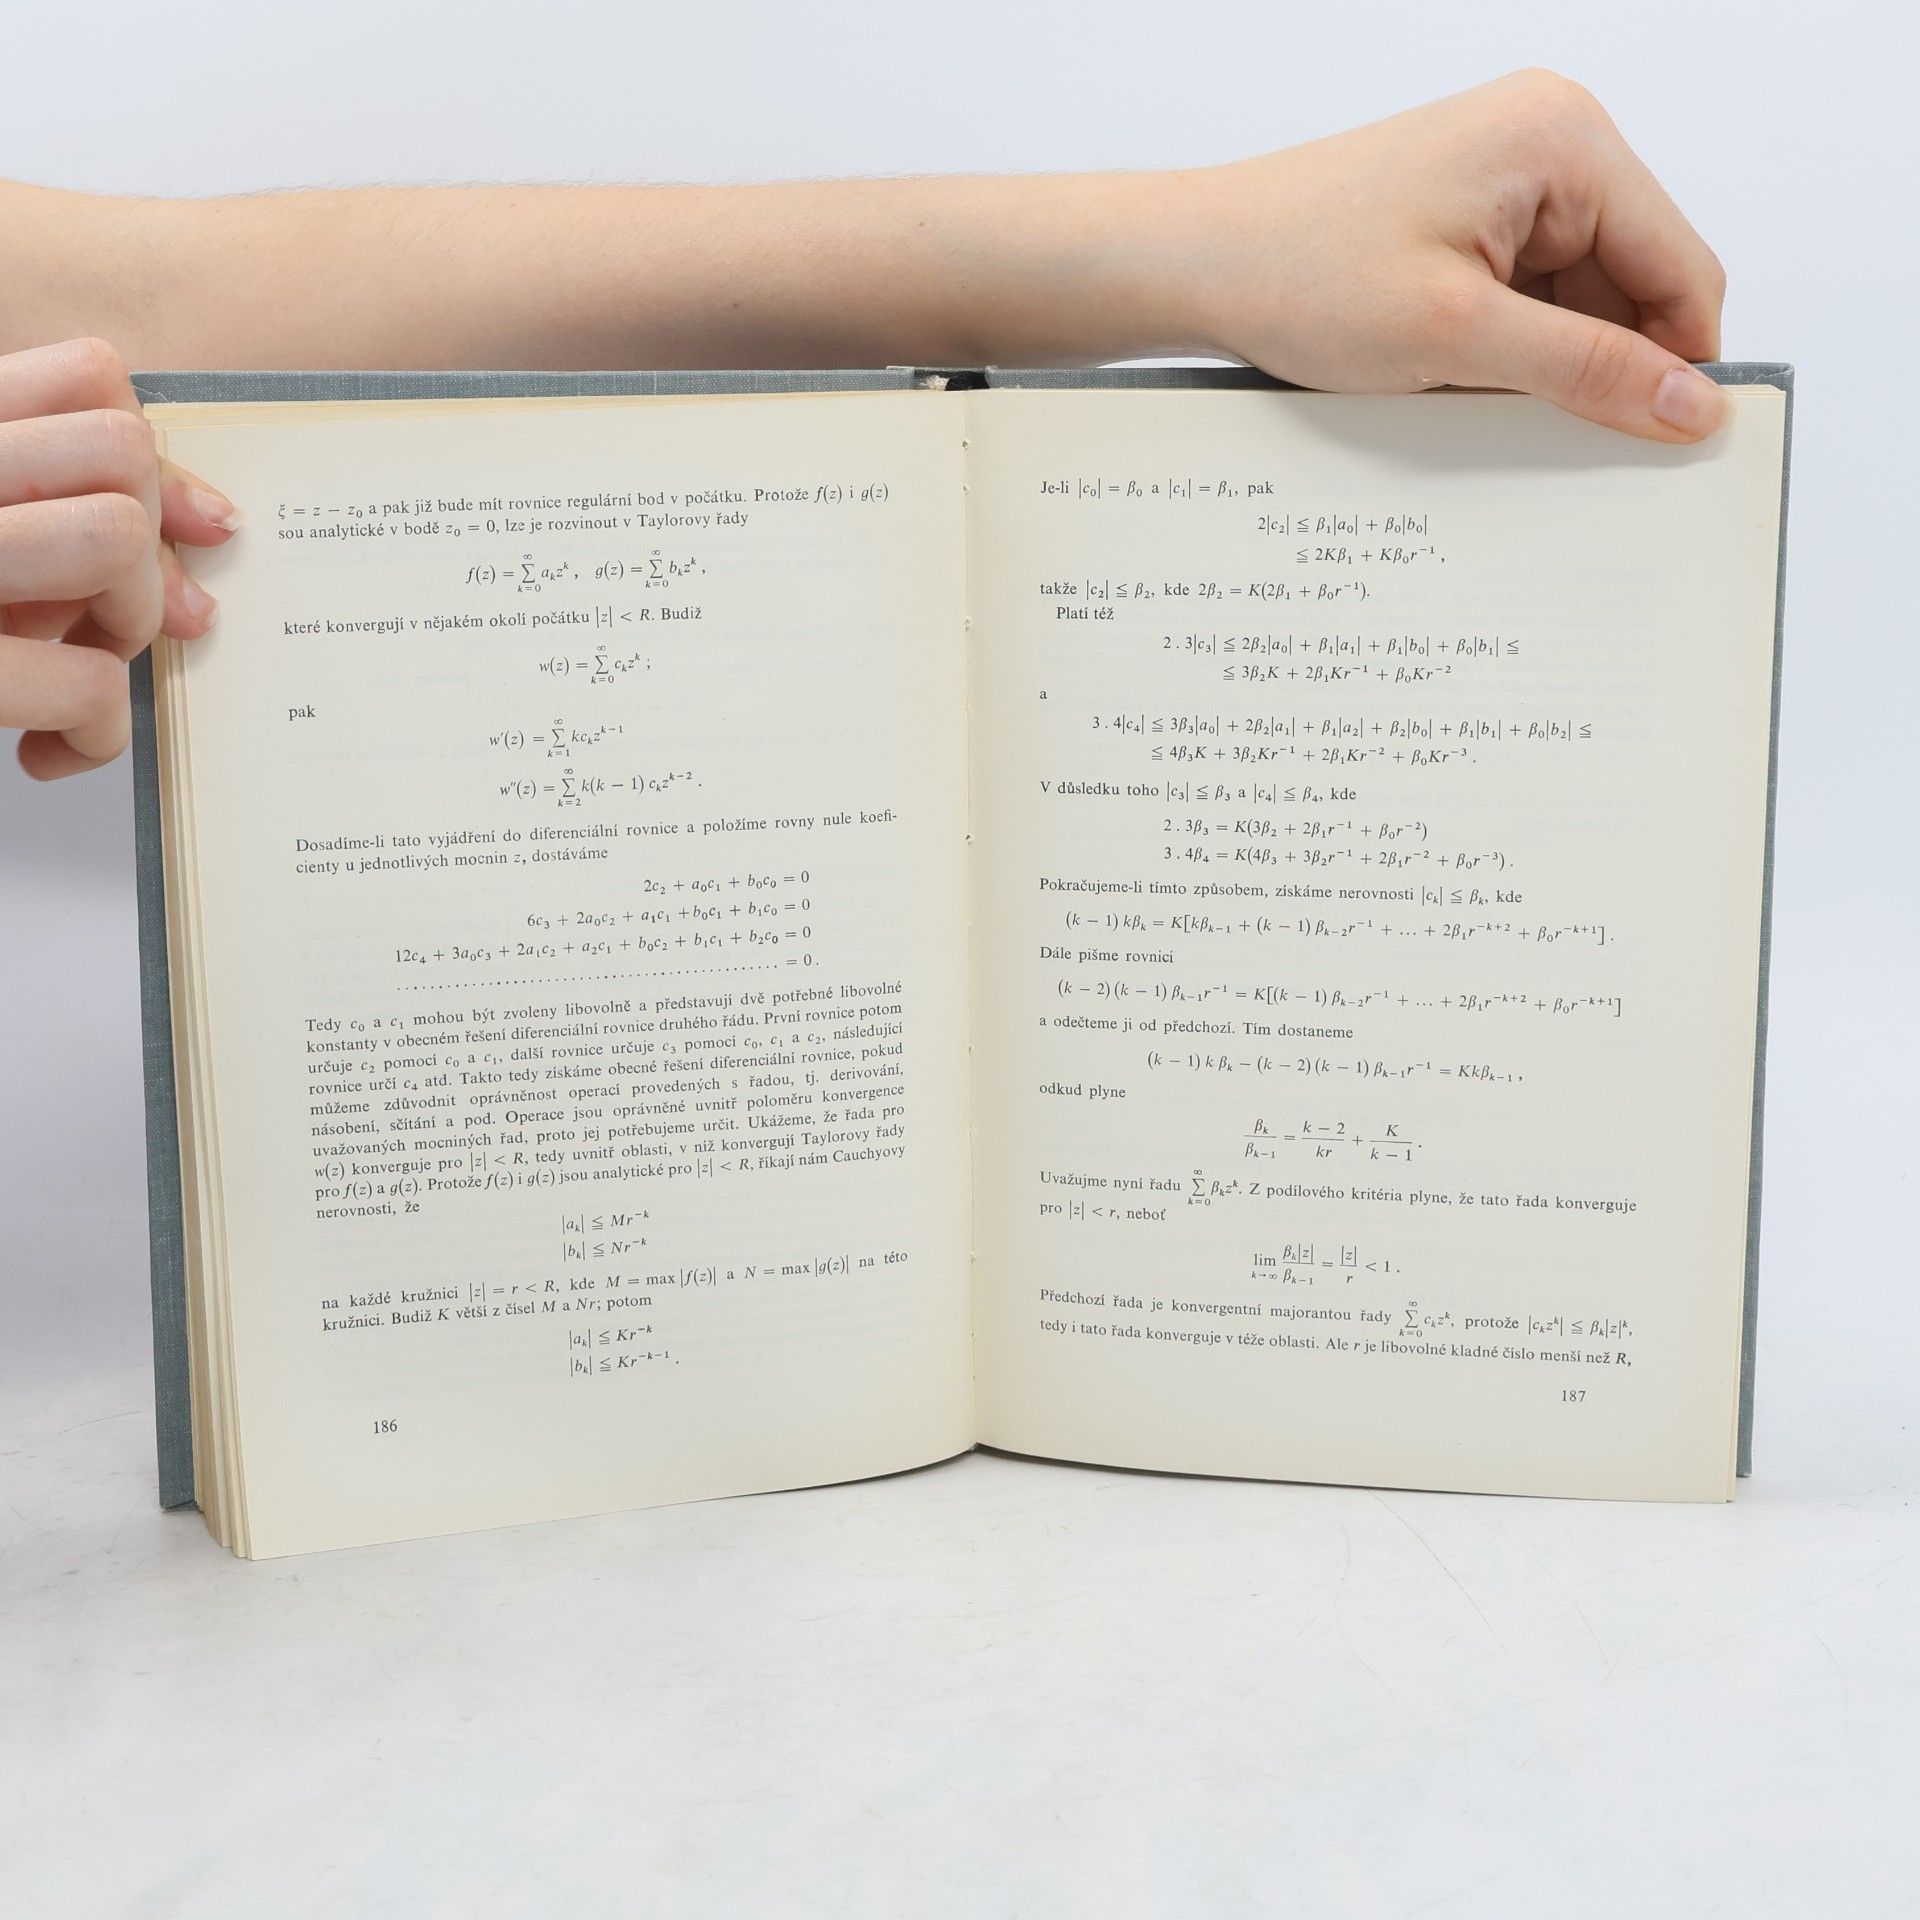 ξ = z − z₀ a pak již bude mít rovnice regulární bod v počátku. Protože f(z) i g(z)
sou analytické v bodě z₀ = 0, lze je rozvinout v Taylorovy řady
f(z) = ∑_{k=0}^{∞} aₖzᵏ , g(z) = ∑_{k=0}^{∞} bₖzᵏ ,
které konvergují v nějakém okolí počátku |z| < R. Budiž
w(z) = ∑_{k=0}^{∞} cₖzᵏ ;
pak
w′(z) = ∑_{k=1}^{∞} kcₖzᵏ⁻¹
w″(z) = ∑_{k=2}^{∞} k(k − 1) cₖzᵏ⁻² .
Dosadíme-li tato vyjádření do diferenciální rovnice a položíme rovny nule koefi-
cienty u jednotlivých mocnin z, dostáváme
2c₂ + a₀c₁ + b₀c₀ = 0
6c₃ + 2a₀c₂ + a₁c₁ + b₀c₁ + b₁c₀ = 0
12c₄ + 3a₀c₃ + 2a₁c₂ + a₂c₁ + b₀c₂ + b₁c₁ + b₂c₀ = 0
............................................. = 0 .
Tedy c₀ a c₁ mohou být zvoleny libovolně a představují dvě potřebné libovolné
konstanty v obecném řešení diferenciální rovnice druhého řádu. První rovnice potom
určuje c₂ pomocí c₀ a c₁, další rovnice určuje c₃ pomocí c₀, c₁ a c₂, následující
rovnice určí c₄ atd. Takto tedy získáme obecné řešení diferenciální rovnice, pokud
můžeme zdůvodnit oprávněnost operací provedených s řadou, tj. derivování,
násobení, sčítání a pod. Operace jsou oprávněné uvnitř poloměru konvergence
uvažovaných mocniných řad, proto jej potřebujeme určit. Ukážeme, že řada pro
w(z) konverguje pro |z| < R, tedy uvnitř oblasti, v níž konvergují Taylorovy řady
pro f(z) a g(z). Protože f(z) i g(z) jsou analytické pro |z| < R, říkají nám Cauchyovy
nerovnosti, že
|aₖ| ≦ Mr⁻ᵏ
|bₖ| ≦ Nr⁻ᵏ
na každé kružnici |z| = r < R, kde M = max |f(z)| a N = max |g(z)| na této
kružnici. Budiž K větší z čísel M a Nr; potom
|aₖ| ≦ Kr⁻ᵏ
|bₖ| ≦ Kr⁻ᵏ⁻¹ .
186
Je-li |c₀| = β₀ a |c₁| = β₁, pak
2|c₂| ≦ β₁|a₀| + β₀|b₀|
≦ 2Kβ₁ + Kβ₀r⁻¹ ,
takže |c₂| ≦ β₂, kde 2β₂ = K(2β₁ + β₀r⁻¹).
Platí též
2 . 3|c₃| ≦ 2β₂|a₀| + β₁|a₁| + β₁|b₀| + β₀|b₁| ≦
≦ 3β₂K + 2β₁Kr⁻¹ + β₀Kr⁻²
a
3 . 4|c₄| ≦ 3β₃|a₀| + 2β₂|a₁| + β₁|a₂| + β₂|b₀| + β₁|b₁| + β₀|b₂| ≦
≦ 4β₃K + 3β₂Kr⁻¹ + 2β₁Kr⁻² + β₀Kr⁻³ .
V důsledku toho |c₃| ≦ β₃ a |c₄| ≦ β₄, kde
2 . 3β₃ = K(3β₂ + 2β₁r⁻¹ + β₀r⁻²)
3 . 4β₄ = K(4β₃ + 3β₂r⁻¹ + 2β₁r⁻² + β₀r⁻³) .
Pokračujeme-li tímto způsobem, získáme nerovnosti |cₖ| ≦ βₖ, kde
(k − 1) kβₖ = K[kβₖ₋₁ + (k − 1) βₖ₋₂r⁻¹ + ... + 2β₁r⁻ᵏ⁺² + β₀r⁻ᵏ⁺¹] .
Dále pišme rovnici
(k − 2) (k − 1) βₖ₋₁r⁻¹ = K[(k − 1) βₖ₋₂r⁻¹ + ... + 2β₁r⁻ᵏ⁺² + β₀r⁻ᵏ⁺¹]
a odečteme ji od předchozí. Tím dostaneme
(k − 1) k βₖ − (k − 2) (k − 1) βₖ₋₁r⁻¹ = Kkβₖ₋₁ ,
odkud plyne
βₖ/βₖ₋₁ = (k − 2)/kr + K/(k − 1) .
Uvažujme nyní řadu ∑_{k=0}^{∞} βₖzᵏ. Z podílového kritéria plyne, že tato řada konverguje
pro |z| < r, neboť
lim_{k→∞} βₖ|z|/βₖ₋₁ = |z|/r < 1 .
Předchozí řada je konvergentní majorantou řady ∑_{k=0}^{∞} cₖzᵏ, protože |cₖzᵏ| ≦ βₖ|z|ᵏ,
tedy i tato řada konverguje v téže oblasti. Ale r je libovolné kladné číslo menší než R,
187